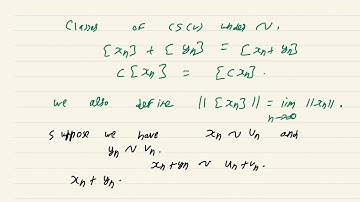 Classes of CS(V) under ~,
[xn] + [yn] = [xn+yn]
c[xn] = [cxn].
we also define ||[xn]|| = lim n→∞ ||xn||.
Suppose we have xn ~ un and
yn ~ vn.
xn+yn ~ un+vn.
xn + yn.